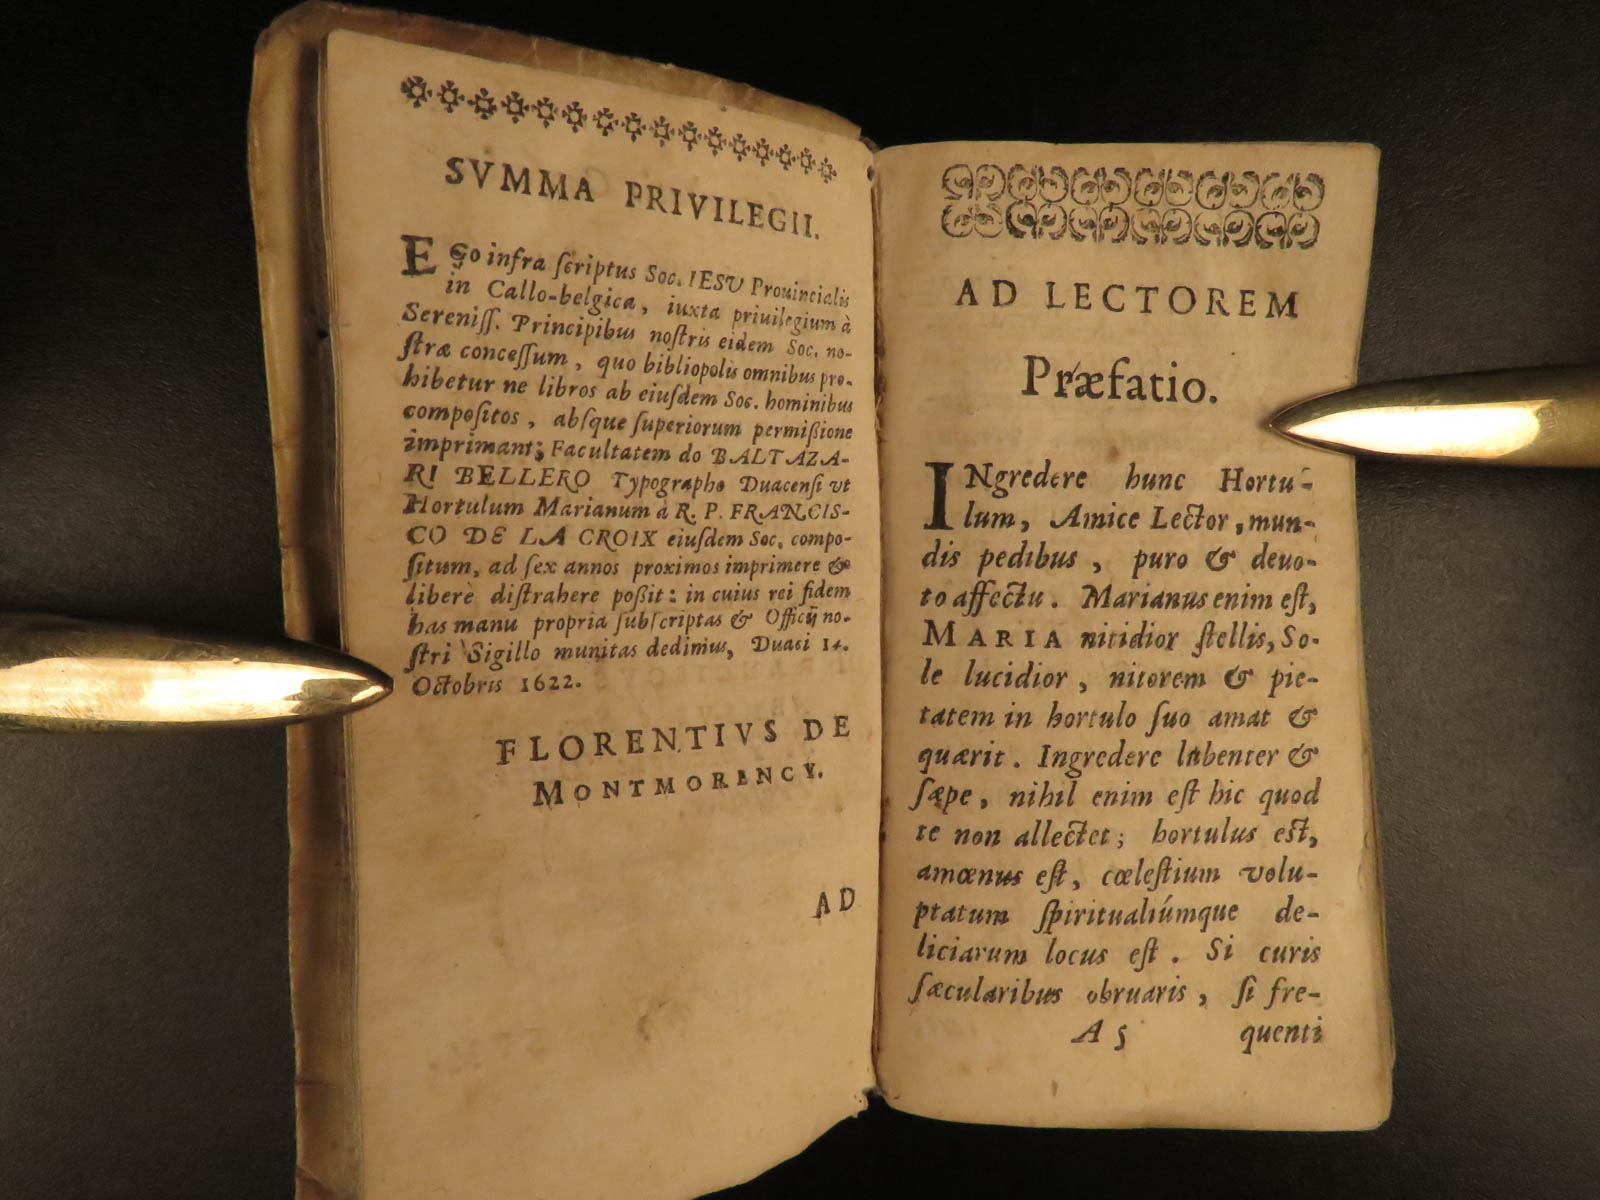 SVMMA PRIVILEGII.
EGo infra ſcriptus Soc. IESV Prouincialis
in Callo-belgica, iuxta priuilegium à
Sereniſſ. Principibus noſtris eidem Soc. no-
ſtræ conceſſum, quo bibliopolis omnibus pro-
hibetur ne libros ab eiuſdem Soc. hominibus
compoſitos, abſque ſuperiorum permißione
imprimant; Facultatem do BALTAZA-
RI BELLERO Typographo Duacenſi vt
Hortulum Marianum à R. P. FRANCIS-
CO DE LA CROIX eiuſdem Soc. compo-
ſitum, ad ſex annos proximos imprimere &
liberè diſtrahere poßit: in cuius rei fidem
has manu propria ſubſcriptas & Officij no-
ſtri Sigillo munitas dedimus, Duaci 14.
Octobris 1622.
FLORENTIVS DE
MONTMORENCY.
AD
AD LECTOREM
Præfatio.
INgredere hunc Hortu-
lum, Amice Lector, mun-
dis pedibus, puro & deuo-
to affectu. Marianus enim eſt,
MARIA nitidior ſtellis, So-
le lucidior, nitorem & pie-
tatem in hortulo ſuo amat &
quærit. Ingredere lubenter &
ſæpe, nihil enim eſt hic quod
te non allectet; hortulus eſt,
amœnus eſt, cœleſtium volu-
ptatum ſpiritualiúmque de-
liciarum locus eſt. Si curis
ſæcularibus obruaris, ſi fre-
A 5 quenti